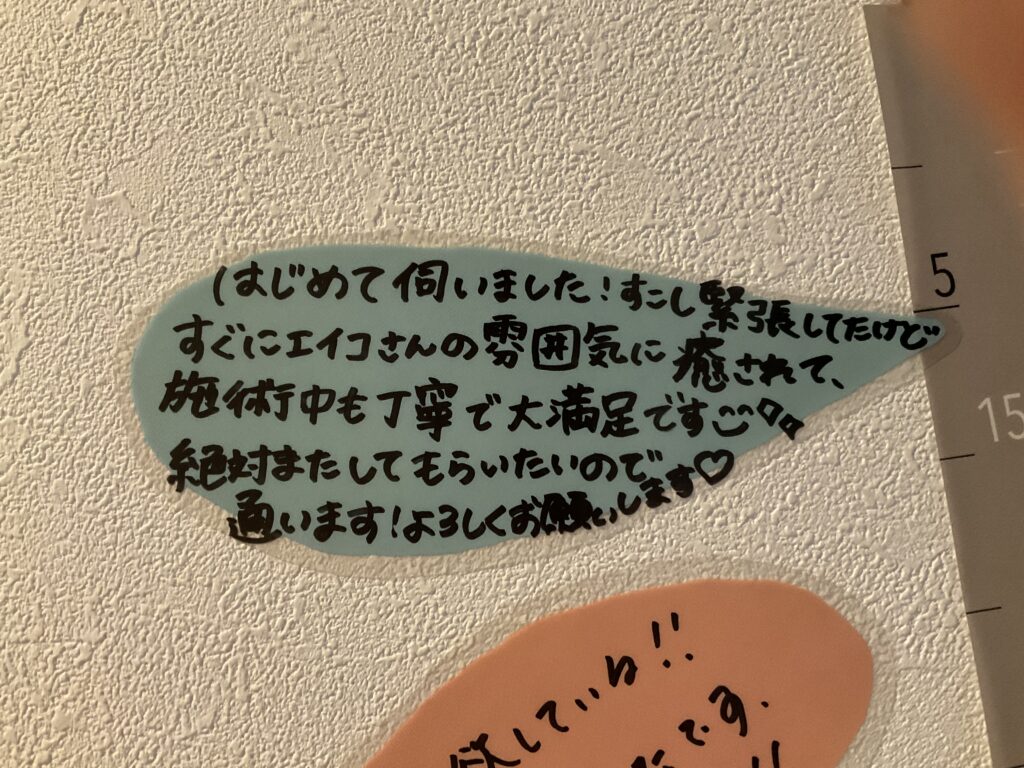 はじめて伺いました！すこし緊張してたけど
すぐにエイコさんの雰囲気に癒されて、
施術中も丁寧で大満足です
絶対またしてもらいたいので
通います！よろしくお願いします♡
していね!!
です.
5
15